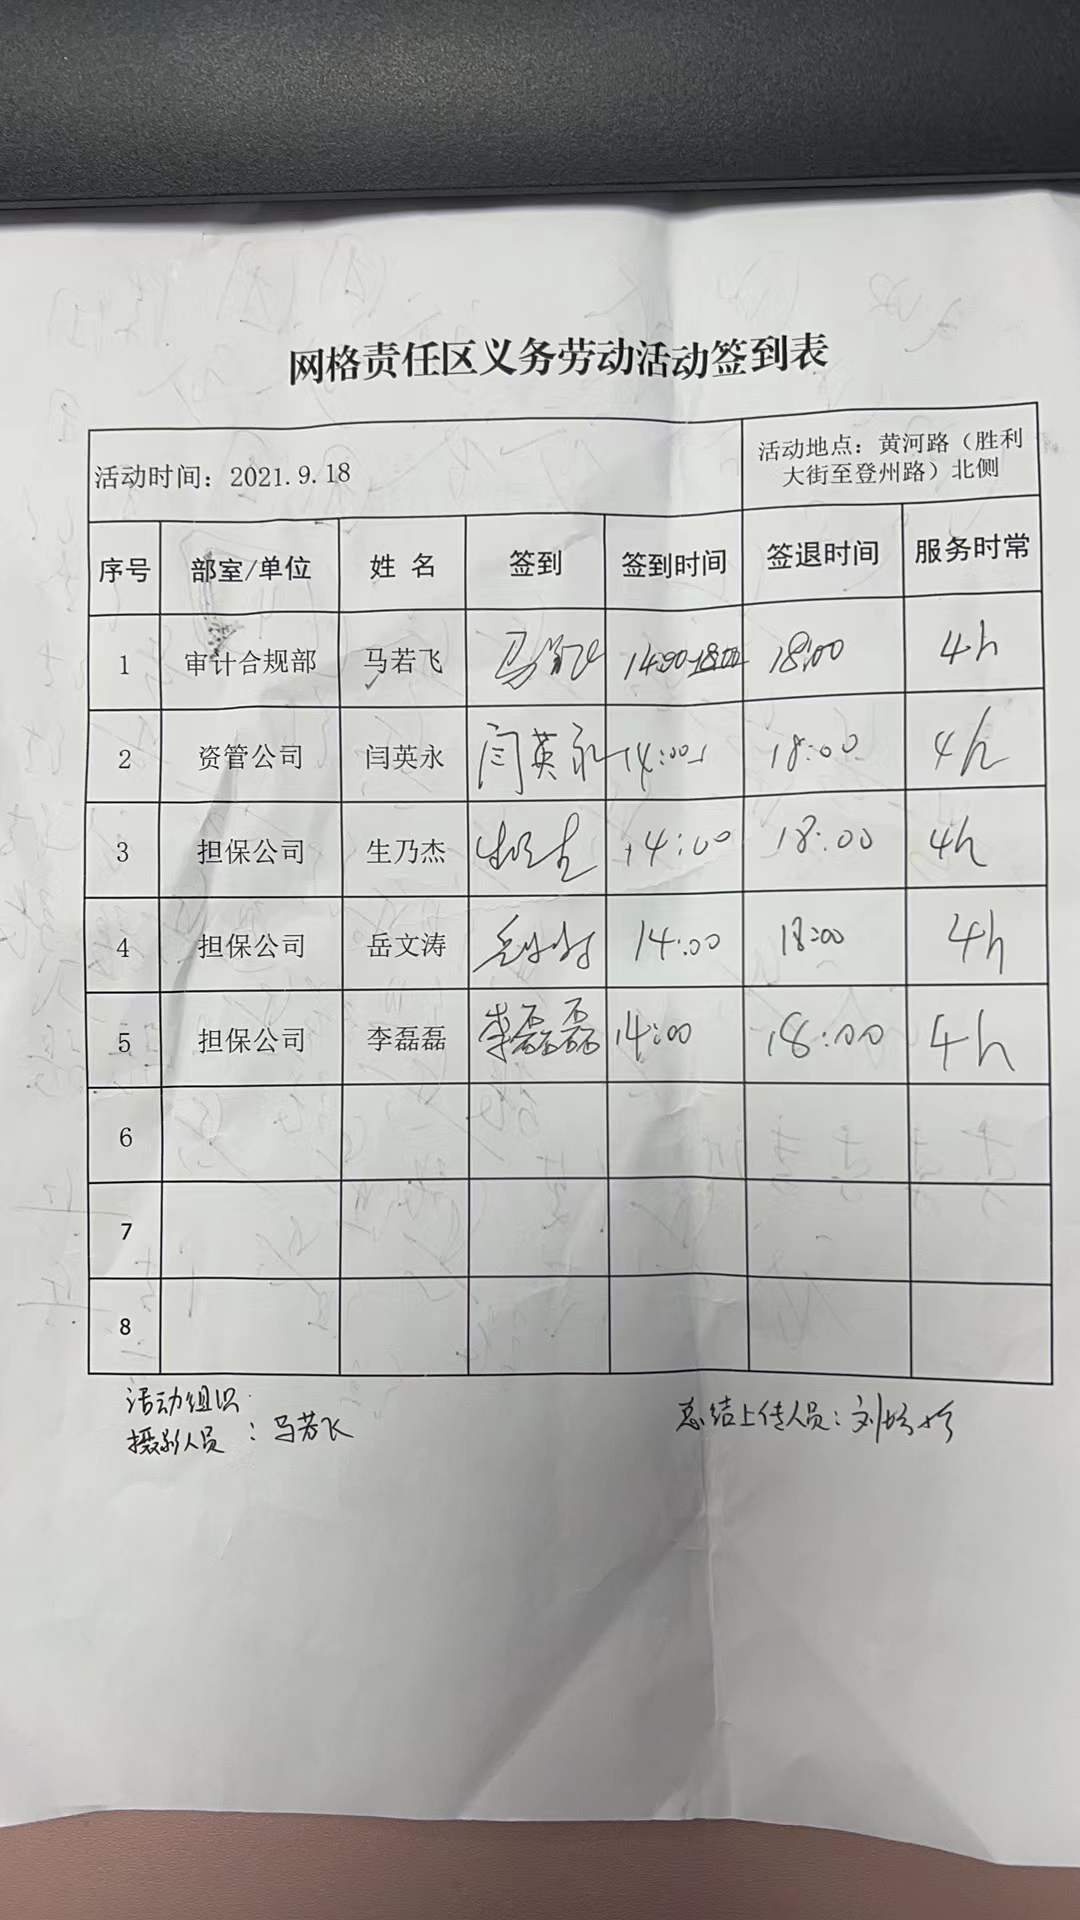 网格责任区义务劳动活动签到表
活动时间：2021.9.18
活动地点：黄河路（胜利
大街至登州路）北侧
序号 部室/单位 姓 名 签到 签到时间 签退时间 服务时常
1 审计合规部 马若飞 马若飞 14:00 18:00 4h
2 资管公司 闫英永 闫英永 14:00 18:00 4h
3 担保公司 生乃杰 14:00 18:00 4h
4 担保公司 岳文涛 14:00 18:00 4h
5 担保公司 李磊磊 李磊磊 14:00 18:00 4h
6
7
8
活动组织
摄影人员：马若飞
总结上传人员：刘